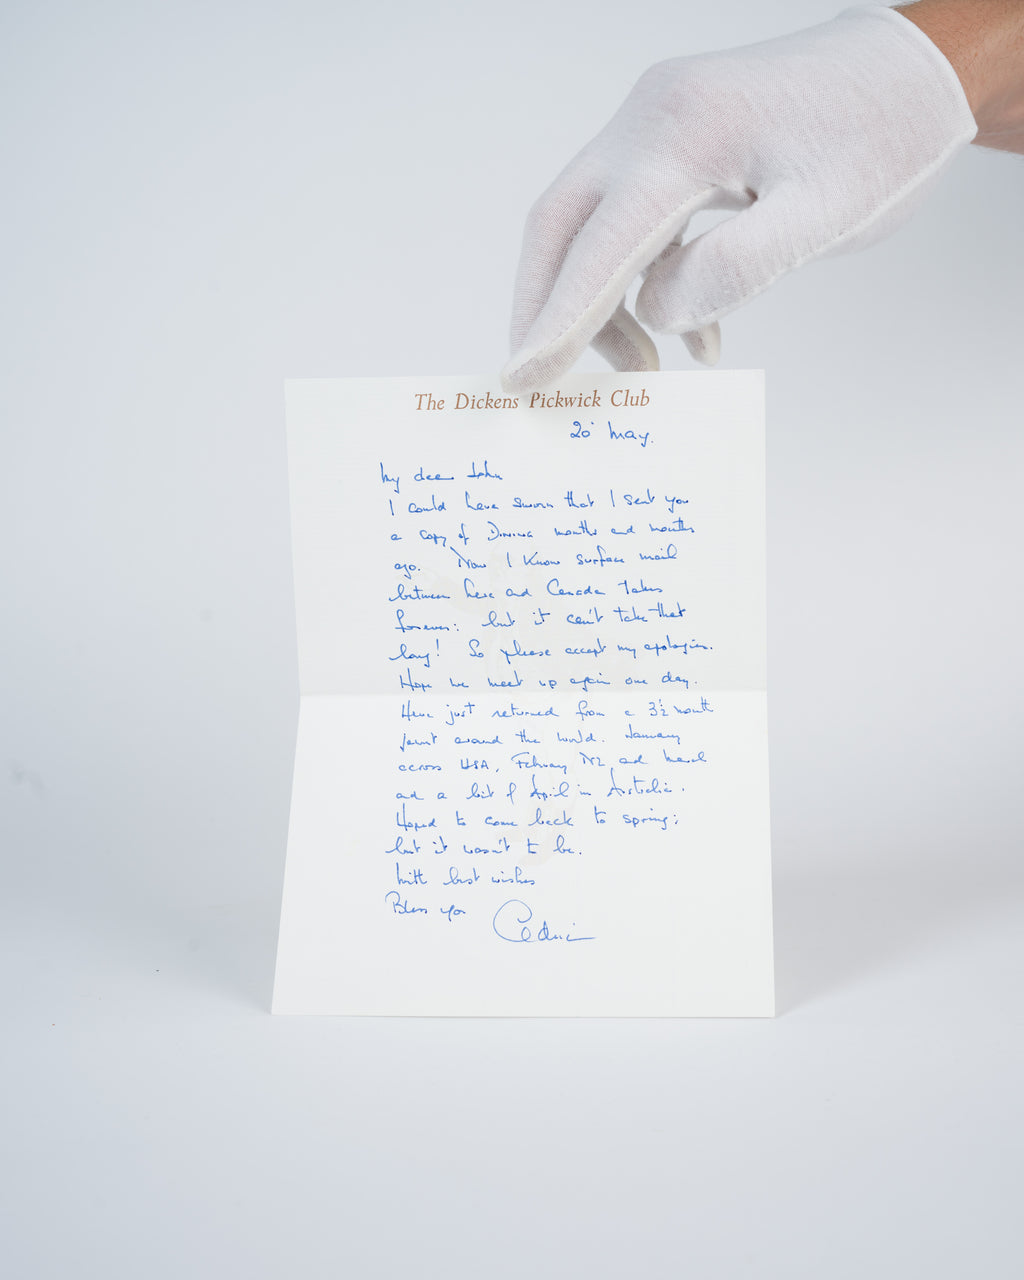 The Dickens Pickwick Club
20 May.
My dear John
I could have sworn that I sent you
a copy of Dining months and months
ago. Now I know surface mail
between here and Canada takes
forever: but it can't take that
long! So please accept my apologies.
Hope we meet up again one day.
Have just returned from a 3½ month
jaunt around the world. January
across USA, February NZ and March
and a bit of April in Australia.
Hoped to come back to spring;
but it wasn't to be.
With best wishes
Bless you
Cedric